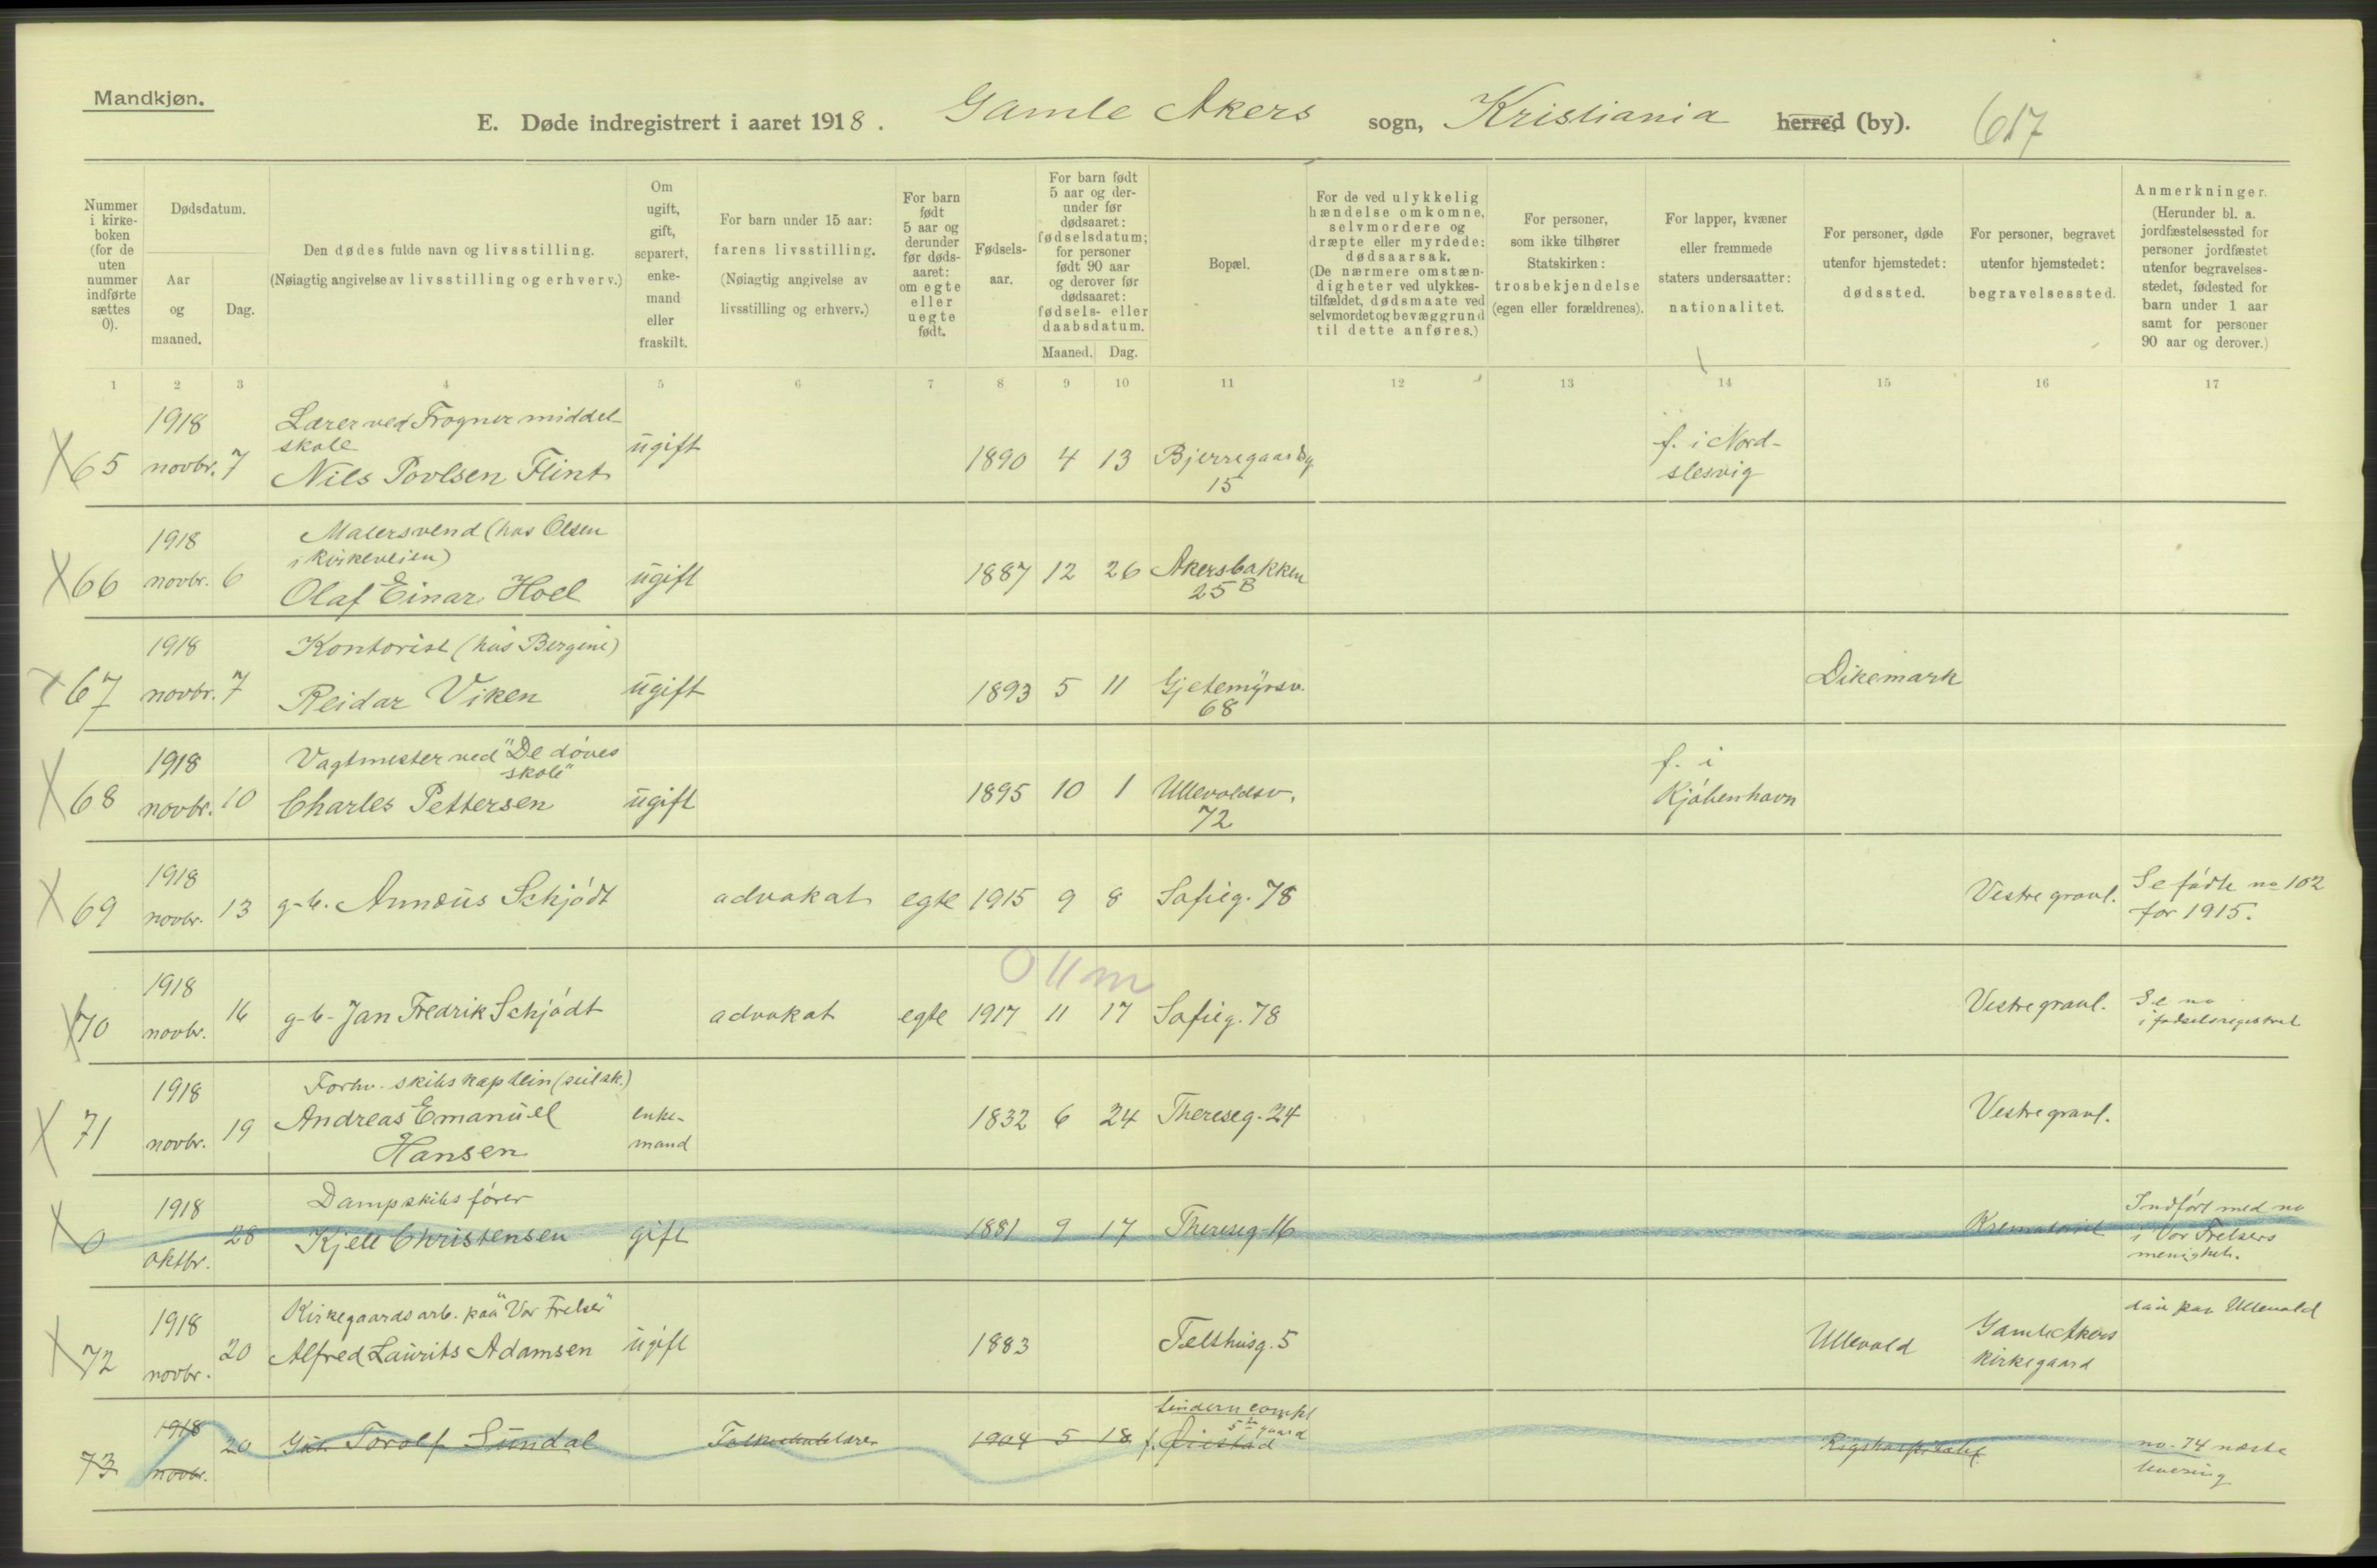 Mandkjøn.
E. Døde indregistrert i aaret 1918. Gamle Akers sogn, Kristiania herred (by). 617
Nummer i kirke-boken (for de uten nummer indførte sættes 0).
Dødsdatum.
Aar og maaned.
Dag.
Den dødes fulde navn og livsstilling.
(Nøiagtig angivelse av livsstilling og erhverv.)
Om ugift, gift, separert, enke-mand eller fraskilt.
For barn under 15 aar: farens livsstilling.
(Nøiagtig angivelse av livsstilling og erhverv.)
For barn født 5 aar og derunder før døds-aaret: om egte eller uegte født.
Fødsels-aar.
For barn født 5 aar og der-under før dødsaaret: fødselsdatum; for personer født 90 aar og derover før dødsaaret: fødsels- eller daabsdatum.
Maaned. Dag.
Bopæl.
For de ved ulykkelig hændelse omkomne, selvmordere og dræpte eller myrdede: dødsaarsak.
(De nærmere omstæn-digheter ved ulykkes-tilfældet, dødsmaate ved selvmordet og bevæggrund til dette anføres.)
For personer, som ikke tilhører Statskirken: trosbekjendelse (egen eller forældrenes).
For lapper, kvæner eller fremmede staters undersaatter: nationalitet.
For personer, døde utenfor hjemstedet: dødssted.
For personer, begravet utenfor hjemstedet: begravelsessted.
Anmerkninger.
(Herunder bl. a. jordfæstelsessted for personer jordfæstet utenfor begravelses-stedet, fødested for barn under 1 aar samt for personer 90 aar og derover.)
1 2 3 4 5 6 7 8 9 10 11 12 13 14 15 16 17
1918 Lærer ved Frogner middel-
skole
65 novbr. 7 Nils Povlsen Flint ugift 1890 4 13 Bjerregaardsg 15 f. i Nord-
slesvig
1918 Malersvend (hos Olsen
i Kirkeveien)
66 novbr. 6 Olaf Einar Hoel ugift 1887 12 26 Akersbakken
25 B
1918 Kontorist (hos Bergene)
67 novbr. 7 Reidar Viken ugift 1893 5 11 Gjetemyrsv. Dikemark
68
1918 Vagtmester ved "De døves
skole"
68 novbr. 10 Charles Pettersen ugift 1895 10 1 Ullevoldsv. f. i
72 Kjøbenhavn
1918
69 novbr. 13 g-b. Annæus Schjødt advokat egte 1915 9 8 Sofieg. 78 Vestre gravl. Se fødte no 102
for 1915.
0 11 m
1918
70 novbr. 16 g-b- Jan Fredrik Schjødt advokat egte 1917 11 17 Sofieg. 78 Vestre gravl. Se no
i fødselsregistret
1918 Forhv. skibskaptein (seilsk.)
71 novbr. 19 Andreas Emanuel enke-
Hansen mand 1832 6 24 Thereseg. 24 Vestre gravl.
1918 Dampskibsfører
0 oktbr. 28 Kjell Christensen gift 1881 9 17 Thereseg 16 Krematoriet Indført med no
i Vor Frelsers
menighet.
1918 Kirkegaardsarb. paa "Vor Frelser"
72 novbr. 20 Alfred Laurits Adamsen ugift 1883 Telthusg. 5 Ullevold Gamle Akers
kirkegaard
paa Ullevold
1918
73 novbr. 20 Gut. Torolf Sundal 1904 5 18 Rigshospitalet no. 74 næste
levering